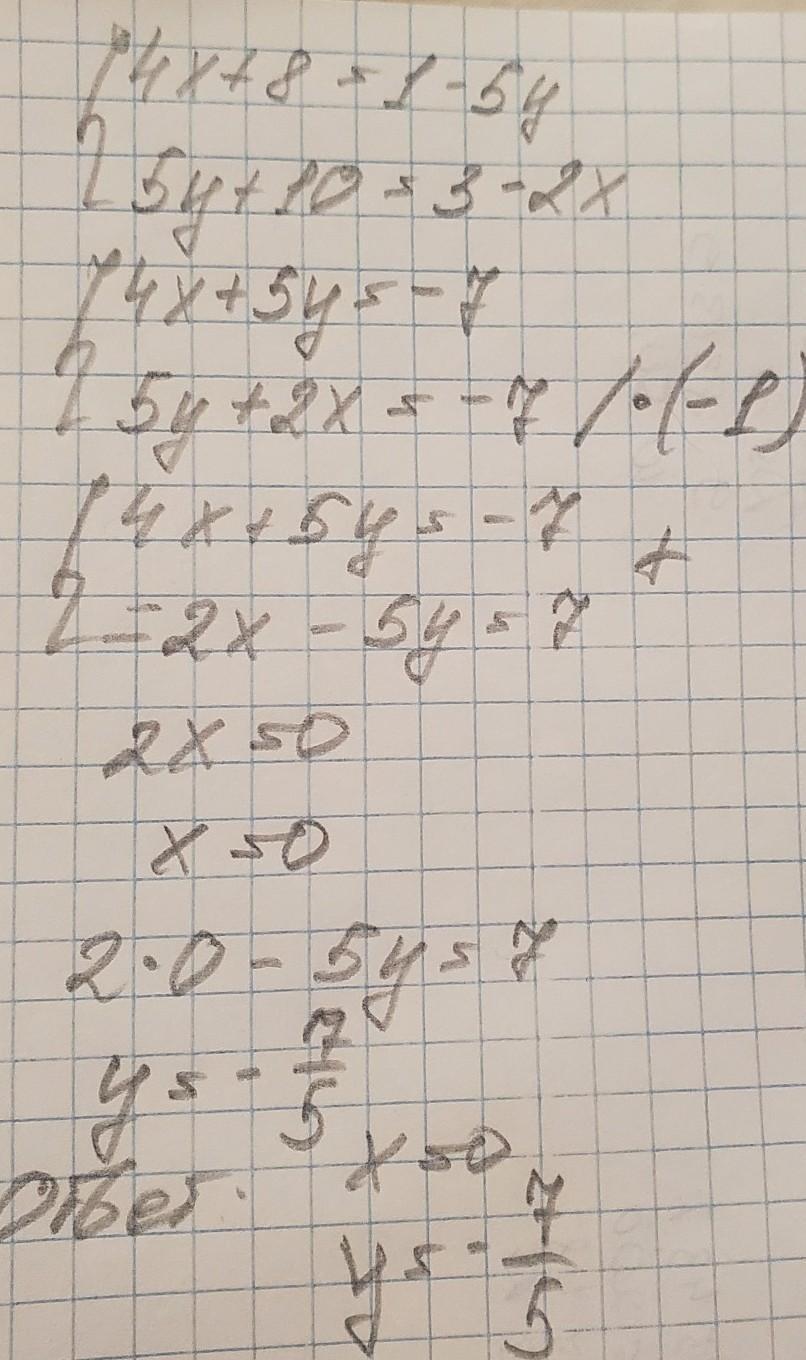 { 4x + 8 = 1 - 5y
5y + 10 = 3 - 2x
{ 4x + 5y = -7
5y + 2x = -7 / · (-1)
{ 4x + 5y = -7 +
-2x - 5y = 7
2x = 0
x = 0
2 · 0 - 5y = 7
y = - 7/5
Ответ. x = 0
y = - 7/5